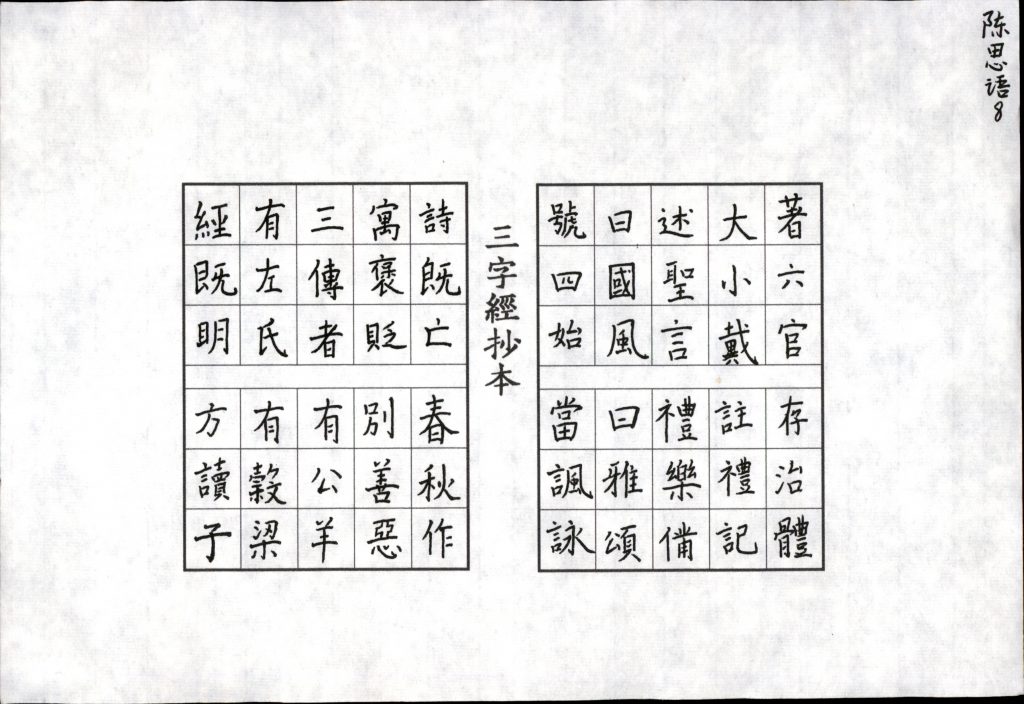 陈思语8
著六官 存治體
大小戴 註禮記
述聖言 禮樂備
曰國風 曰雅頌
號四始 當諷詠
三字經抄本
詩既亡 春秋作
寓褒貶 別善惡
三傳者 有公羊
有左氏 有穀梁
經既明 方讀子